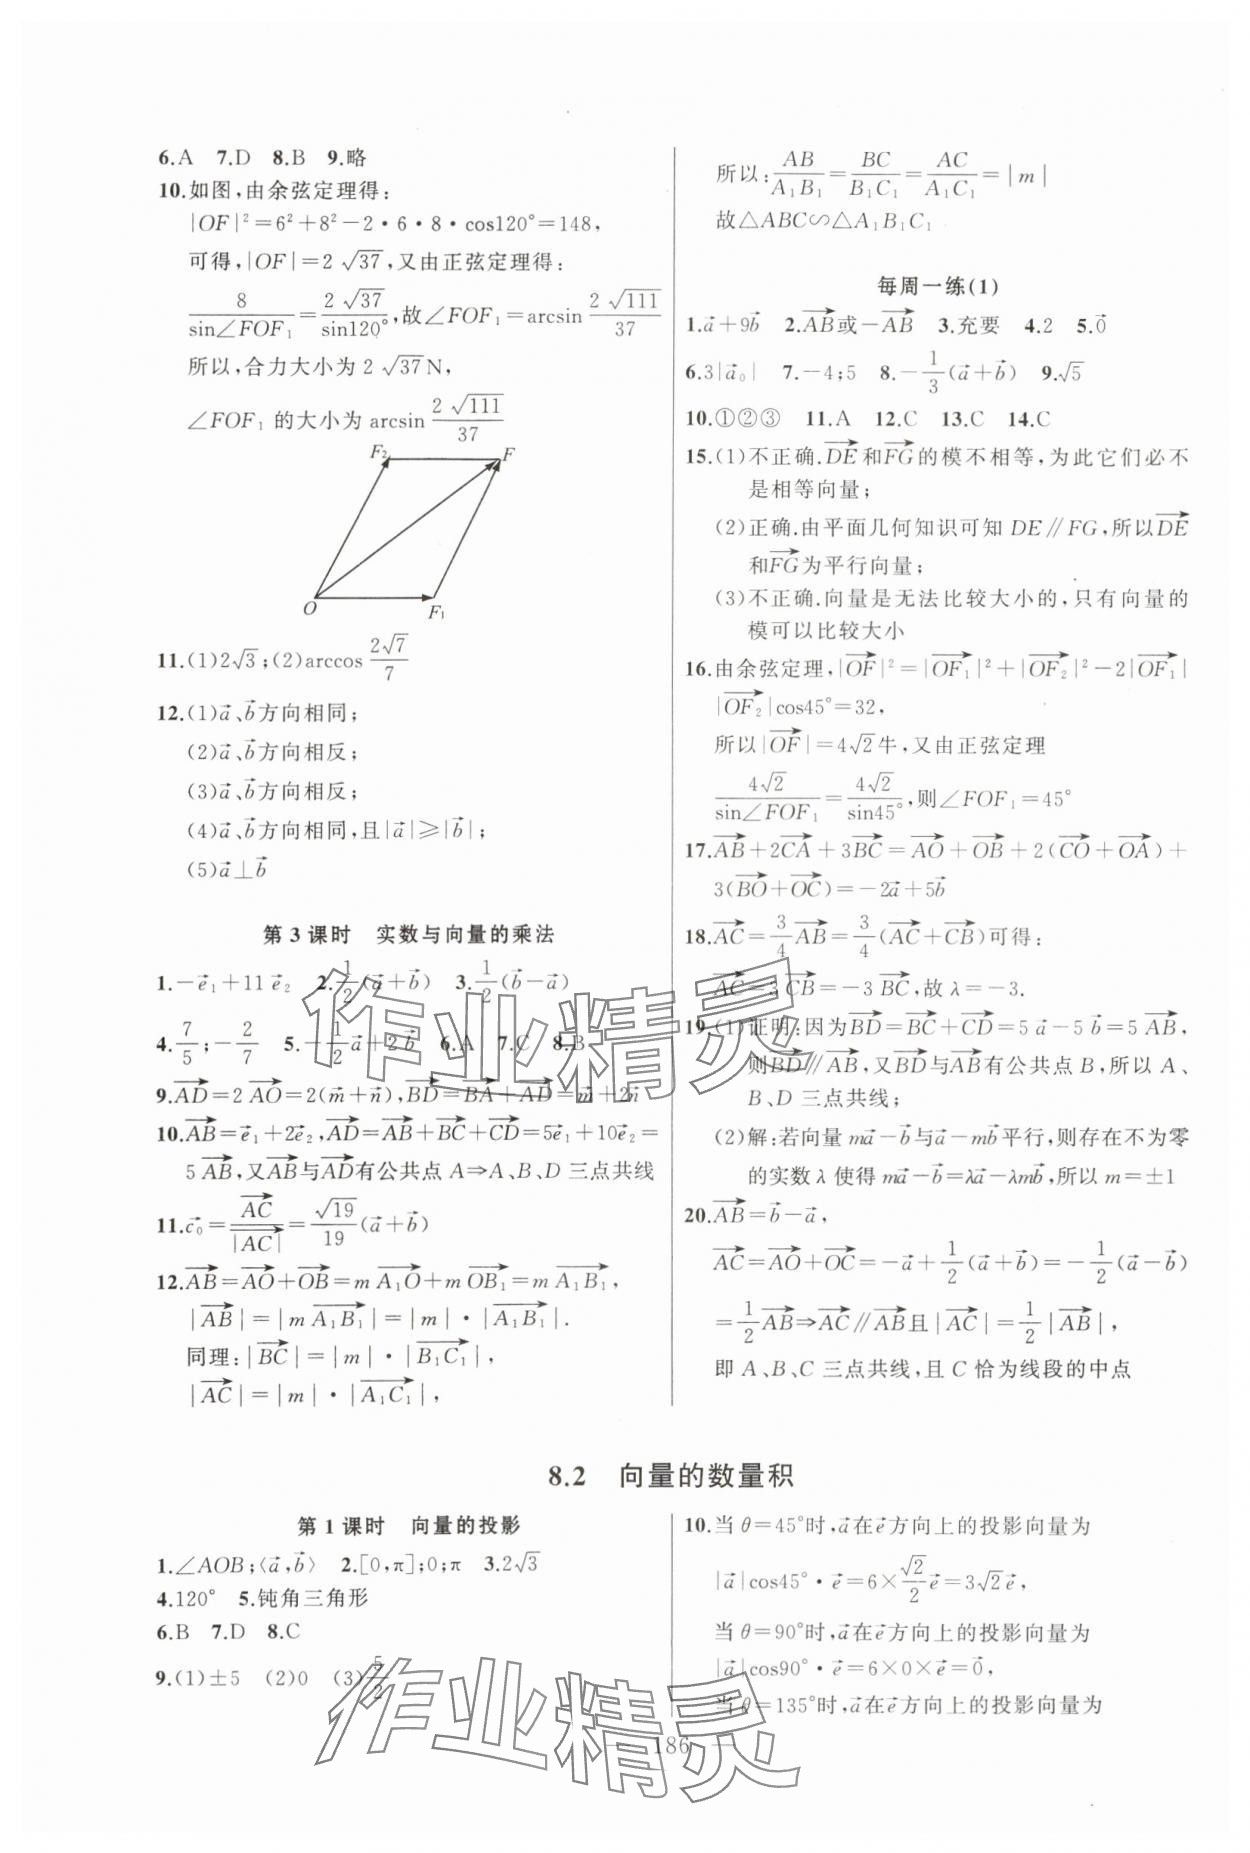 6.A 7.D 8.B 9.略
10.如图,由余弦定理得:
|OF|²=6²+8²-2·6·8·cos120°=148,
可得,|OF|=2√37,又由正弦定理得:
8/sin∠FOF₁=2√37/sin120°,故∠FOF₁=arcsin 2√111/37
所以,合力大小为2√37N,
∠FOF₁的大小为arcsin 2√111/37
F₂ F
O F₁
11.(1)2√3;(2)arccos 2√7/7
12.(1)a⃗、b⃗方向相同;
(2)a⃗、b⃗方向相反;
(3)a⃗、b⃗方向相反;
(4)a⃗、b⃗方向相同,且|a⃗|≥|b⃗|;
(5)a⃗⊥b⃗
第3课时 实数与向量的乘法
1.-e⃗₁+11e⃗₂ 2.1/2(a⃗+b⃗) 3.1/2(b⃗-a⃗)
4.7/5;-2/7 5.-1/2a⃗+2b⃗ 6.A 7.C 8.B
9.AD⃗=2AO⃗=2(m⃗+n⃗),BD⃗=BA⃗+AD⃗=m⃗+2n⃗
10.AB⃗=e⃗₁+2e⃗₂,AD⃗=AB⃗+BC⃗+CD⃗=5e⃗₁+10e⃗₂=
5AB⃗,又AB⃗与AD⃗有公共点A⇒A、B、D三点共线
11.c⃗₀=AC⃗/|AC⃗|=√19/19(a⃗+b⃗)
12.AB⃗=AO⃗+OB⃗=mA₁O⃗+mOB₁⃗=mA₁B₁⃗,
|AB⃗|=|mA₁B₁⃗|=|m|·|A₁B₁⃗|.
同理:|BC⃗|=|m|·|B₁C₁⃗|,
|AC⃗|=|m|·|A₁C₁⃗|,
所以:AB/A₁B₁=BC/B₁C₁=AC/A₁C₁=|m|
故△ABC∽△A₁B₁C₁
每周一练(1)
1.a⃗+9b⃗ 2.AB⃗或-AB⃗ 3.充要 4.2 5.0⃗
6.3|a⃗₀| 7.-4;5 8.-1/3(a⃗+b⃗) 9.√5
10.①②③ 11.A 12.C 13.C 14.C
15.(1)不正确.DE⃗和FG⃗的模不相等,为此它们必不
是相等向量;
(2)正确.由平面几何知识可知DE∥FG,所以DE⃗
和FG⃗为平行向量;
(3)不正确.向量是无法比较大小的,只有向量的
模可以比较大小
16.由余弦定理,|OF⃗|²=|OF₁⃗|²+|OF₂⃗|²-2|OF₁⃗|
|OF₂⃗|cos45°=32,
所以|OF⃗|=4√2牛,又由正弦定理
4√2/sin∠FOF₁=4√2/sin45°,则∠FOF₁=45°
17.AB⃗+2CA⃗+3BC⃗=AO⃗+OB⃗+2(CO⃗+OA⃗)+
3(BO⃗+OC⃗)=-2a⃗+5b⃗
18.AC⃗=3/4AB⃗=3/4(AC⃗+CB⃗)可得:
AC⃗=3CB⃗=-3BC⃗,故λ=-3.
19.(1)证明:因为BD⃗=BC⃗+CD⃗=5a⃗-5b⃗=5AB⃗,
则BD⃗∥AB⃗,又BD⃗与AB⃗有公共点B,所以A、
B、D三点共线;
(2)解:若向量ma⃗-b⃗与a⃗-mb⃗平行,则存在不为零
的实数λ使得ma⃗-b⃗=λa⃗-λmb⃗,所以m=±1
20.AB⃗=b⃗-a⃗,
AC⃗=AO⃗+OC⃗=-a⃗+1/2(a⃗+b⃗)=-1/2(a⃗-b⃗)
=1/2AB⃗⇒AC⃗∥AB⃗且|AC⃗|=1/2|AB⃗|,
即A、B、C三点共线,且C恰为线段的中点
8.2 向量的数量积
第1课时 向量的投影
1.∠AOB;⟨a⃗,b⃗⟩ 2.[0,π];0;π 3.2√3
4.120° 5.钝角三角形
6.B 7.D 8.C
9.(1)±5 (2)0 (3)5/2
10.当θ=45°时,a⃗在e⃗方向上的投影向量为
|a⃗|cos45°·e⃗=6×√2/2e⃗=3√2e⃗,
当θ=90°时,a⃗在e⃗方向上的投影向量为
|a⃗|cos90°·e⃗=6×0×e⃗=0⃗,
当θ=135°时,a⃗在e⃗方向上的投影向量为
— 186 —
作业精灵
作业精灵